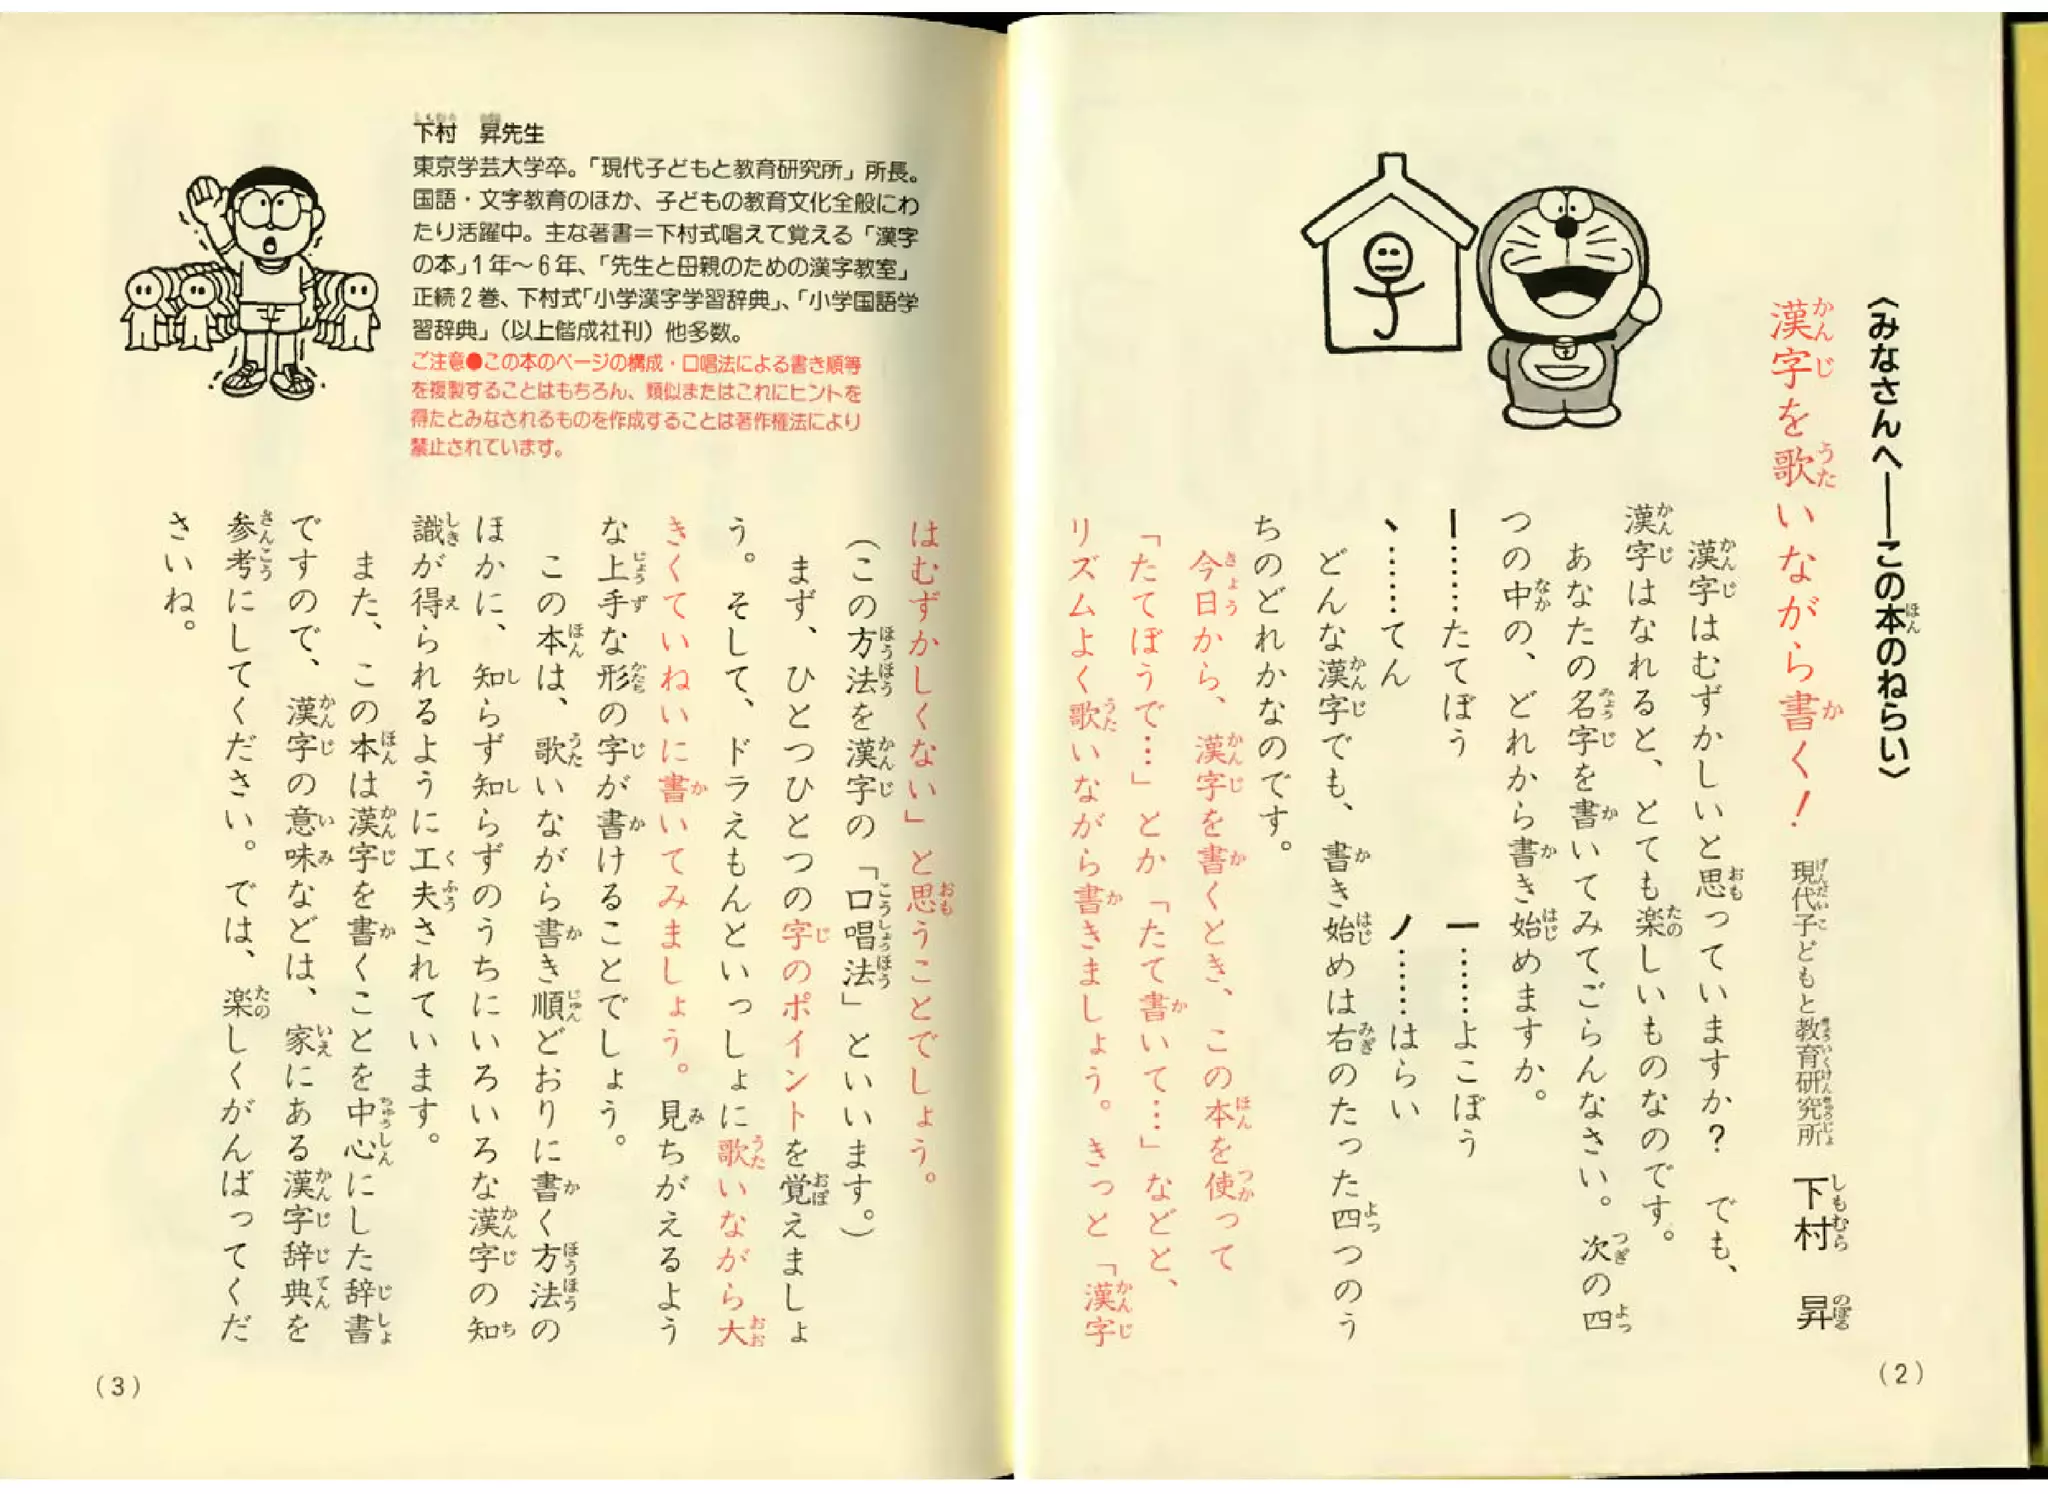 〈みなさんへ――この本のねらい〉
漢字を歌いながら書く！
現代子どもと教育研究所 下村 昇
漢字はむずかしいと思っていますか？ でも、
漢字はなれると、とても楽しいものなのです。
あなたの名字を書いてみてごらんなさい。次の四
つの中の、どれから書き始めますか。
｜……たてぼう 一……よこぼう
丶……てん ノ……はらい
どんな漢字でも、書き始めは右のたった四つのう
ちのどれかなのです。
今日から、漢字を書くとき、この本を使って
「たてぼうで…」とか「たて書いて…」などと、
リズムよく歌いながら書きましょう。きっと「漢字
(2)
はむずかしくない」と思うことでしょう。
(この方法を漢字の「口唱法」といいます。)
まず、ひとつひとつの字のポイントを覚えましょ
う。そして、ドラえもんといっしょに歌いながら大
きくていねいに書いてみましょう。見ちがえるよう
な上手な形の字が書けることでしょう。
この本は、歌いながら書き順どおりに書く方法の
ほかに、知らず知らずのうちにいろいろな漢字の知
識が得られるように工夫されています。
また、この本は漢字を書くことを中心にした辞書
ですので、漢字の意味などは、家にある漢字辞典を
参考にしてください。では、楽しくがんばってくだ
さいね。
下村 昇先生
東京学芸大学卒。「現代子どもと教育研究所」所長。
国語・文字教育のほか、子どもの教育文化全般にわ
たり活躍中。主な著書＝下村式唱えて覚える「漢字
の本」1年～6年、「先生と母親のための漢字教室」
正続2巻、下村式「小学漢字学習辞典」、「小学国語学
習辞典」(以上偕成社刊) 他多数。
ご注意●この本のページの構成・口唱法による書き順等
を複製することはもちろん、類似またはこれにヒントを
得たとみなされるものを作成することは著作権法により
禁止されています。
(3)